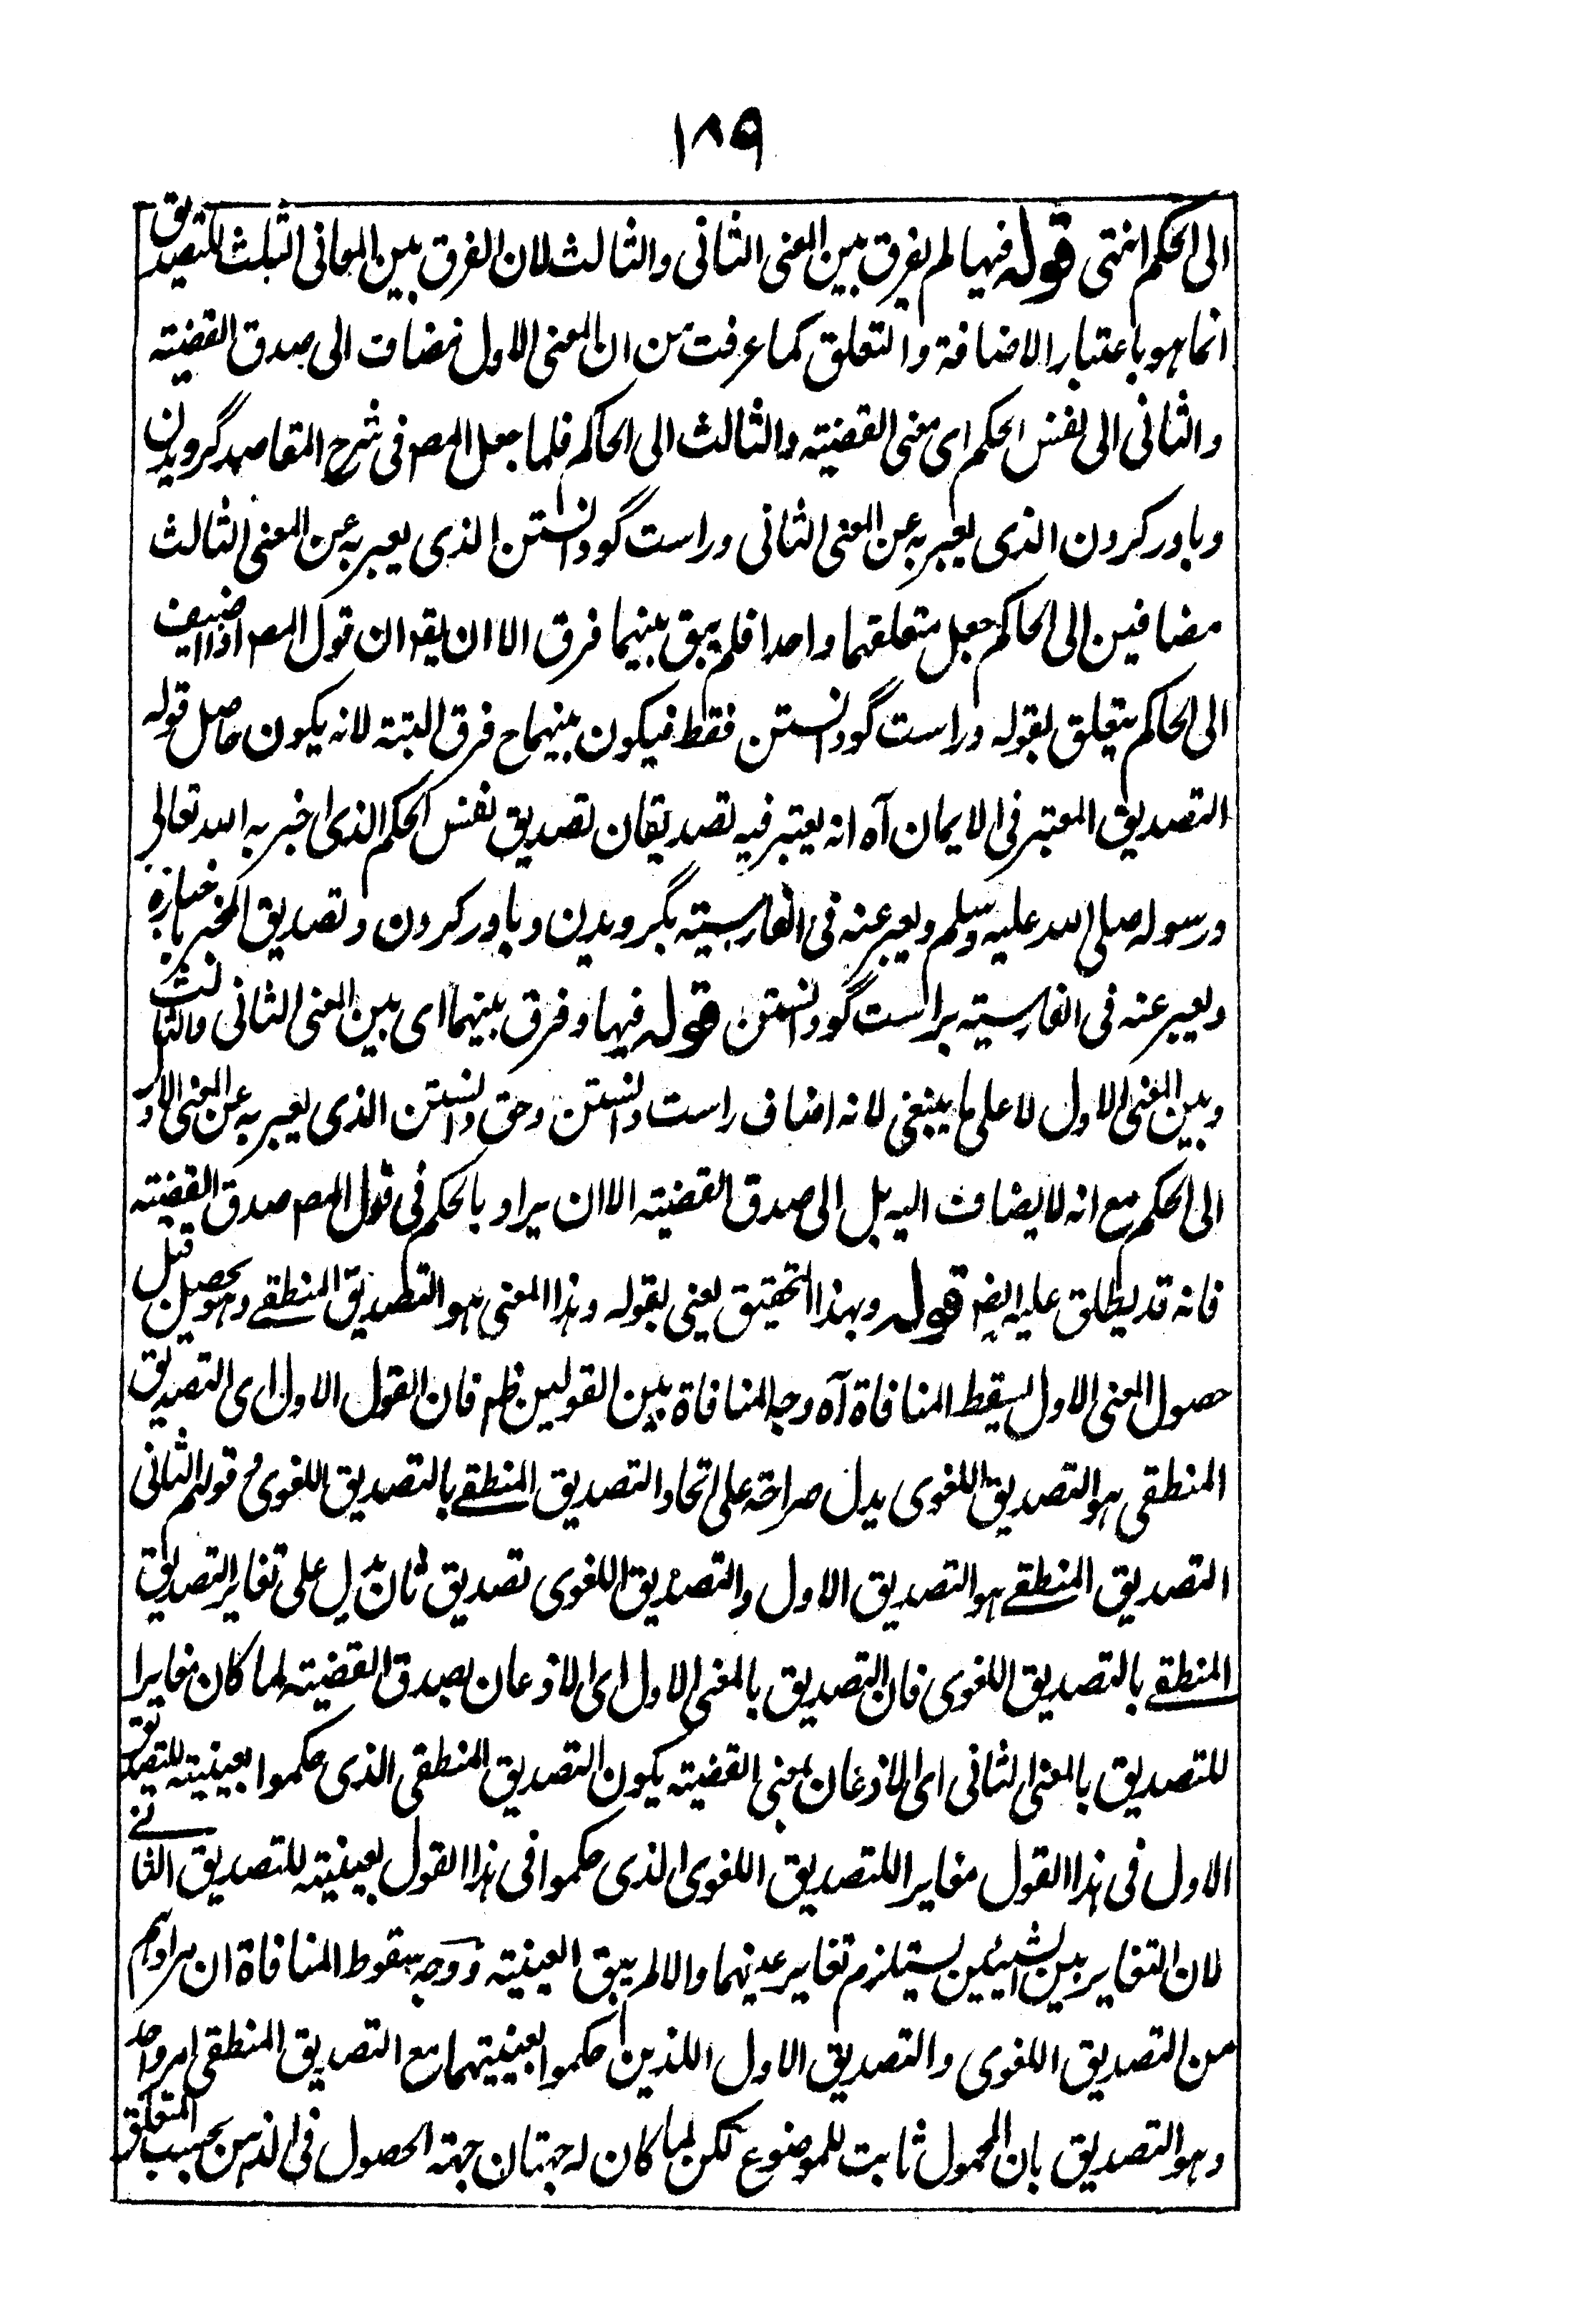 ١٨٩
الى الحكم انتهى قوله فيها لم يفرق بين المعنى الثانى والثالث لان الفرق بين المعانى الثلث للتصديق
انما هو باعتبار الاضافة والتعلق كما عرفت من ان المعنى الاول مضاف الى صدق القضيته
والثانى الى نفس الحكم اى معنى القضيته والثالث الى الحاكم فلما جعل المصـ فى شرح المقاصد گرويدن
وباور كردن الذى يعبر به عن المعنى الثانى وراست گو دانستن الذى يعبر به عن المعنى الثالث
مضافين الى الحاكم جعل متعلقهما واحدا فلم يبق بينهما فرق الا ان يقـ ان قول المصـ اذا اضيف
الى الحاكم يتعلق بقوله وراست گو دانستن فقط فيكون بينهما ح فرق البتة لانه يكون حاصل قوله
التصديق المعتبر فى الايمان آه انه يعتبر فيه تصديقان تصديق نفس الحكم الذى اخبر به الله تعالى
ورسوله صلى الله عليه وسلم ويعبر عنه فى الفارسيته بگرويدن وباور كردن وتصديق المخبر باخباره
ويعبر عنه فى الفارسيته براست گو دانستن قوله فيها وفرق بينهما اى بين المعنى الثانى والثالث
وبين المعنى الاول لا على ما ينبغى لانه اضاف راست دانستن وحق دانستن الذى يعبر به عن المعنى الاول
الى الحكم مع انه لا يضاف اليه بل الى صدق القضيته الا ان يراد بالحكم فى قول المصـ صدق القضيته
فانه قد يطلق عليه ايضـ قوله وبهذا التحقيق يعنى بقوله وهذا المعنى هو التصديق المنطقے وهو يحصل قبل
حصول المعنى الاول يسقط المنافاة آه وجه المنافاة بين القولين ظـ فان القول الاول اى التصديق
المنطقى هو التصديق اللغوى يدل صراحته على اتحاد التصديق المنطقے بالتصديق اللغوى و قولهم الثانى
التصديق المنطقے هو التصديق الاول والتصديق اللغوى تصديق ثان يدل على تغاير التصديق
المنطقے بالتصديق اللغوى فان التصديق بالمعنى الاول اى الاذعان بصدق القضيته لما كان مغايرا
للتصديق بالمعنى الثانى اى الاذعان بمعنى القضيته يكون التصديق المنطقى الذى حكموا بعينيته للتصديق
الاول فى هذا القول مغايرا للتصديق اللغوى الذى حكموا فى هذا القول بعينيته للتصديق الثانے
لان التغاير بين الشيئين يستلزم تغاير عينهما والا لم يبق العينيته ووجه سقوط المنافاة ان مرادهم
من التصديق اللغوى والتصديق الاول اللذين حكموا بعينيتهما مع التصديق المنطقى امر واحد
وهو التصديق بان المحمول ثابت للموضوع لكن لما كان له جهتان جهته الحصول فى الذهن بحسب المتعلق